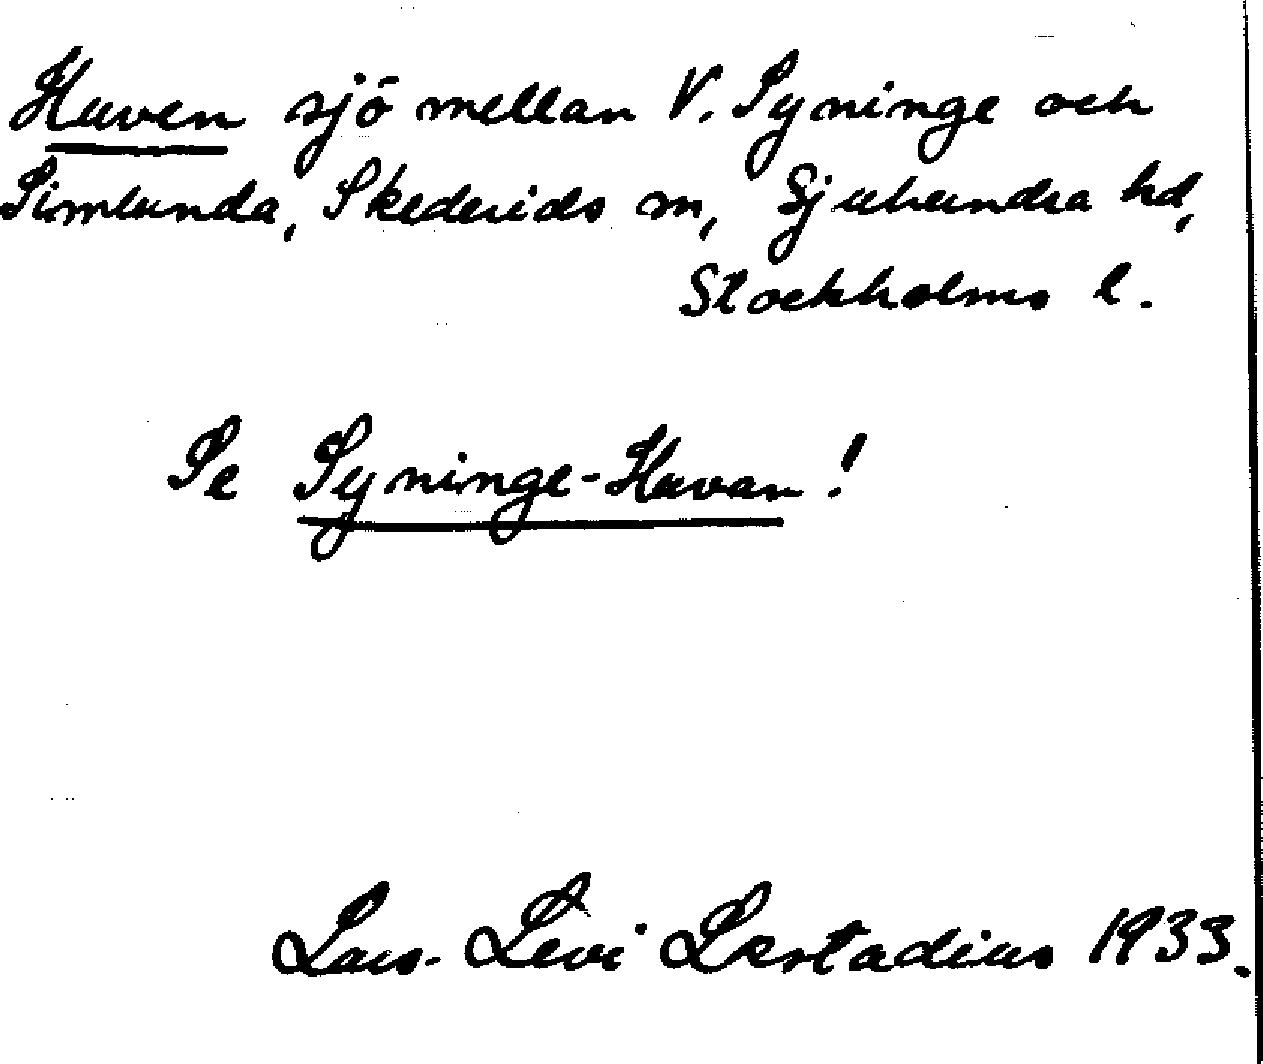 Haven sjö mellan V. Syninge och
Simlunda, Skederids sn, Sjuhundra hd,
Stockholms l.
Se Syninge-Havan!
Lars-Levi Læstadius 1933.